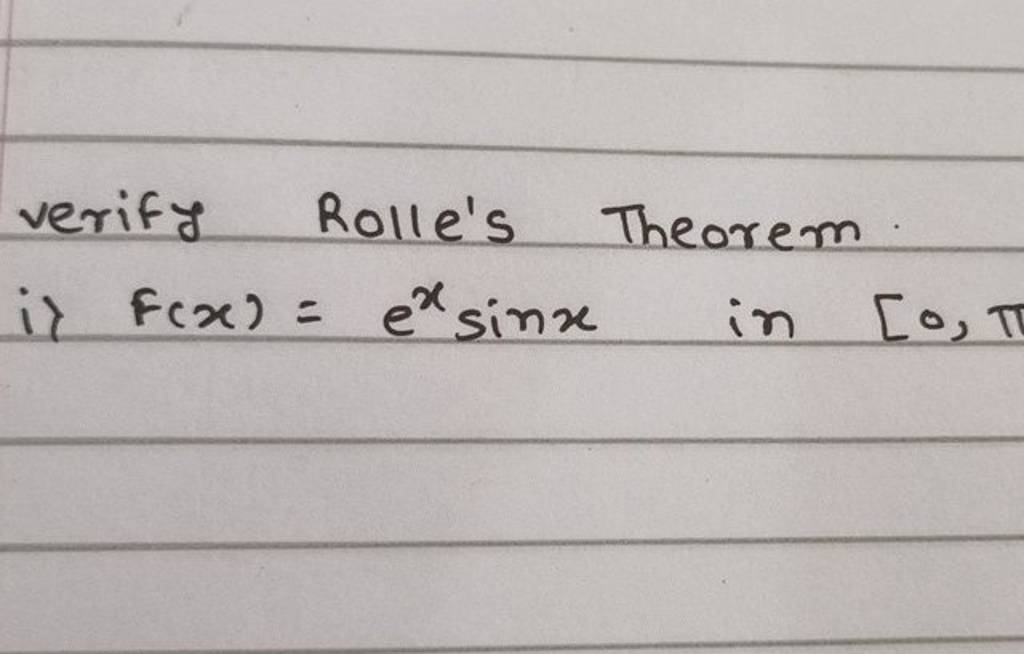 verify Rolle's Theorem.
i) f(x) = eˣ sinx in [0, π